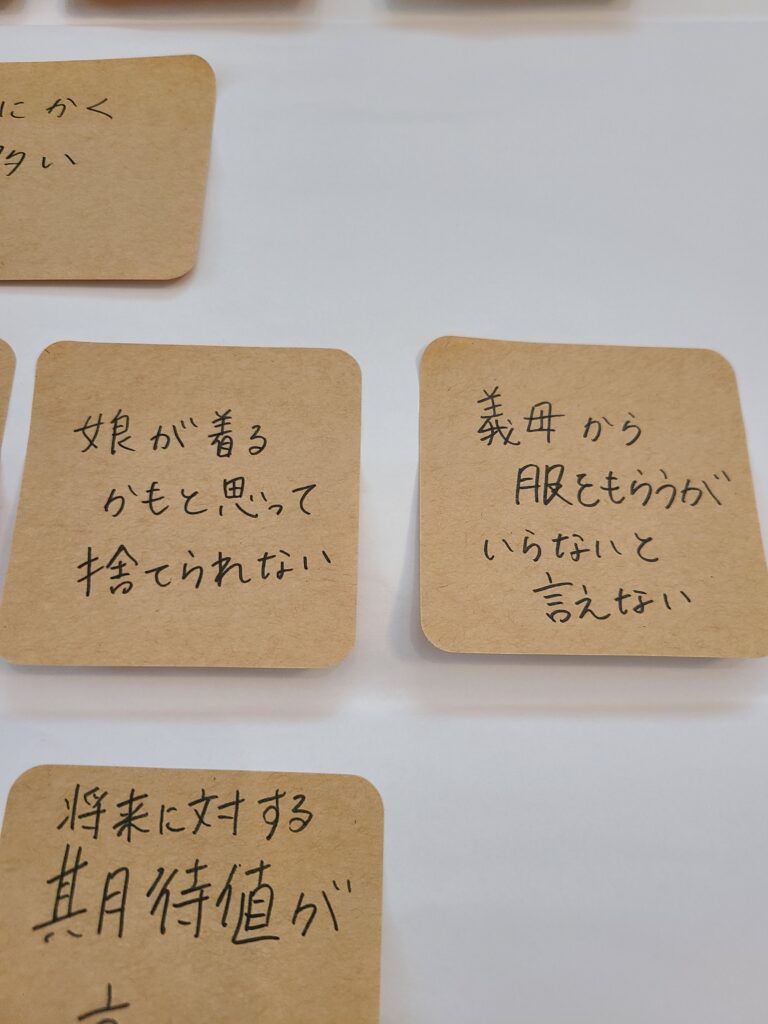 にかく
多い
娘が着る
かもと思って
捨てられない
義母から
服をもらうが
いらないと
言えない
将来に対する
期待値が